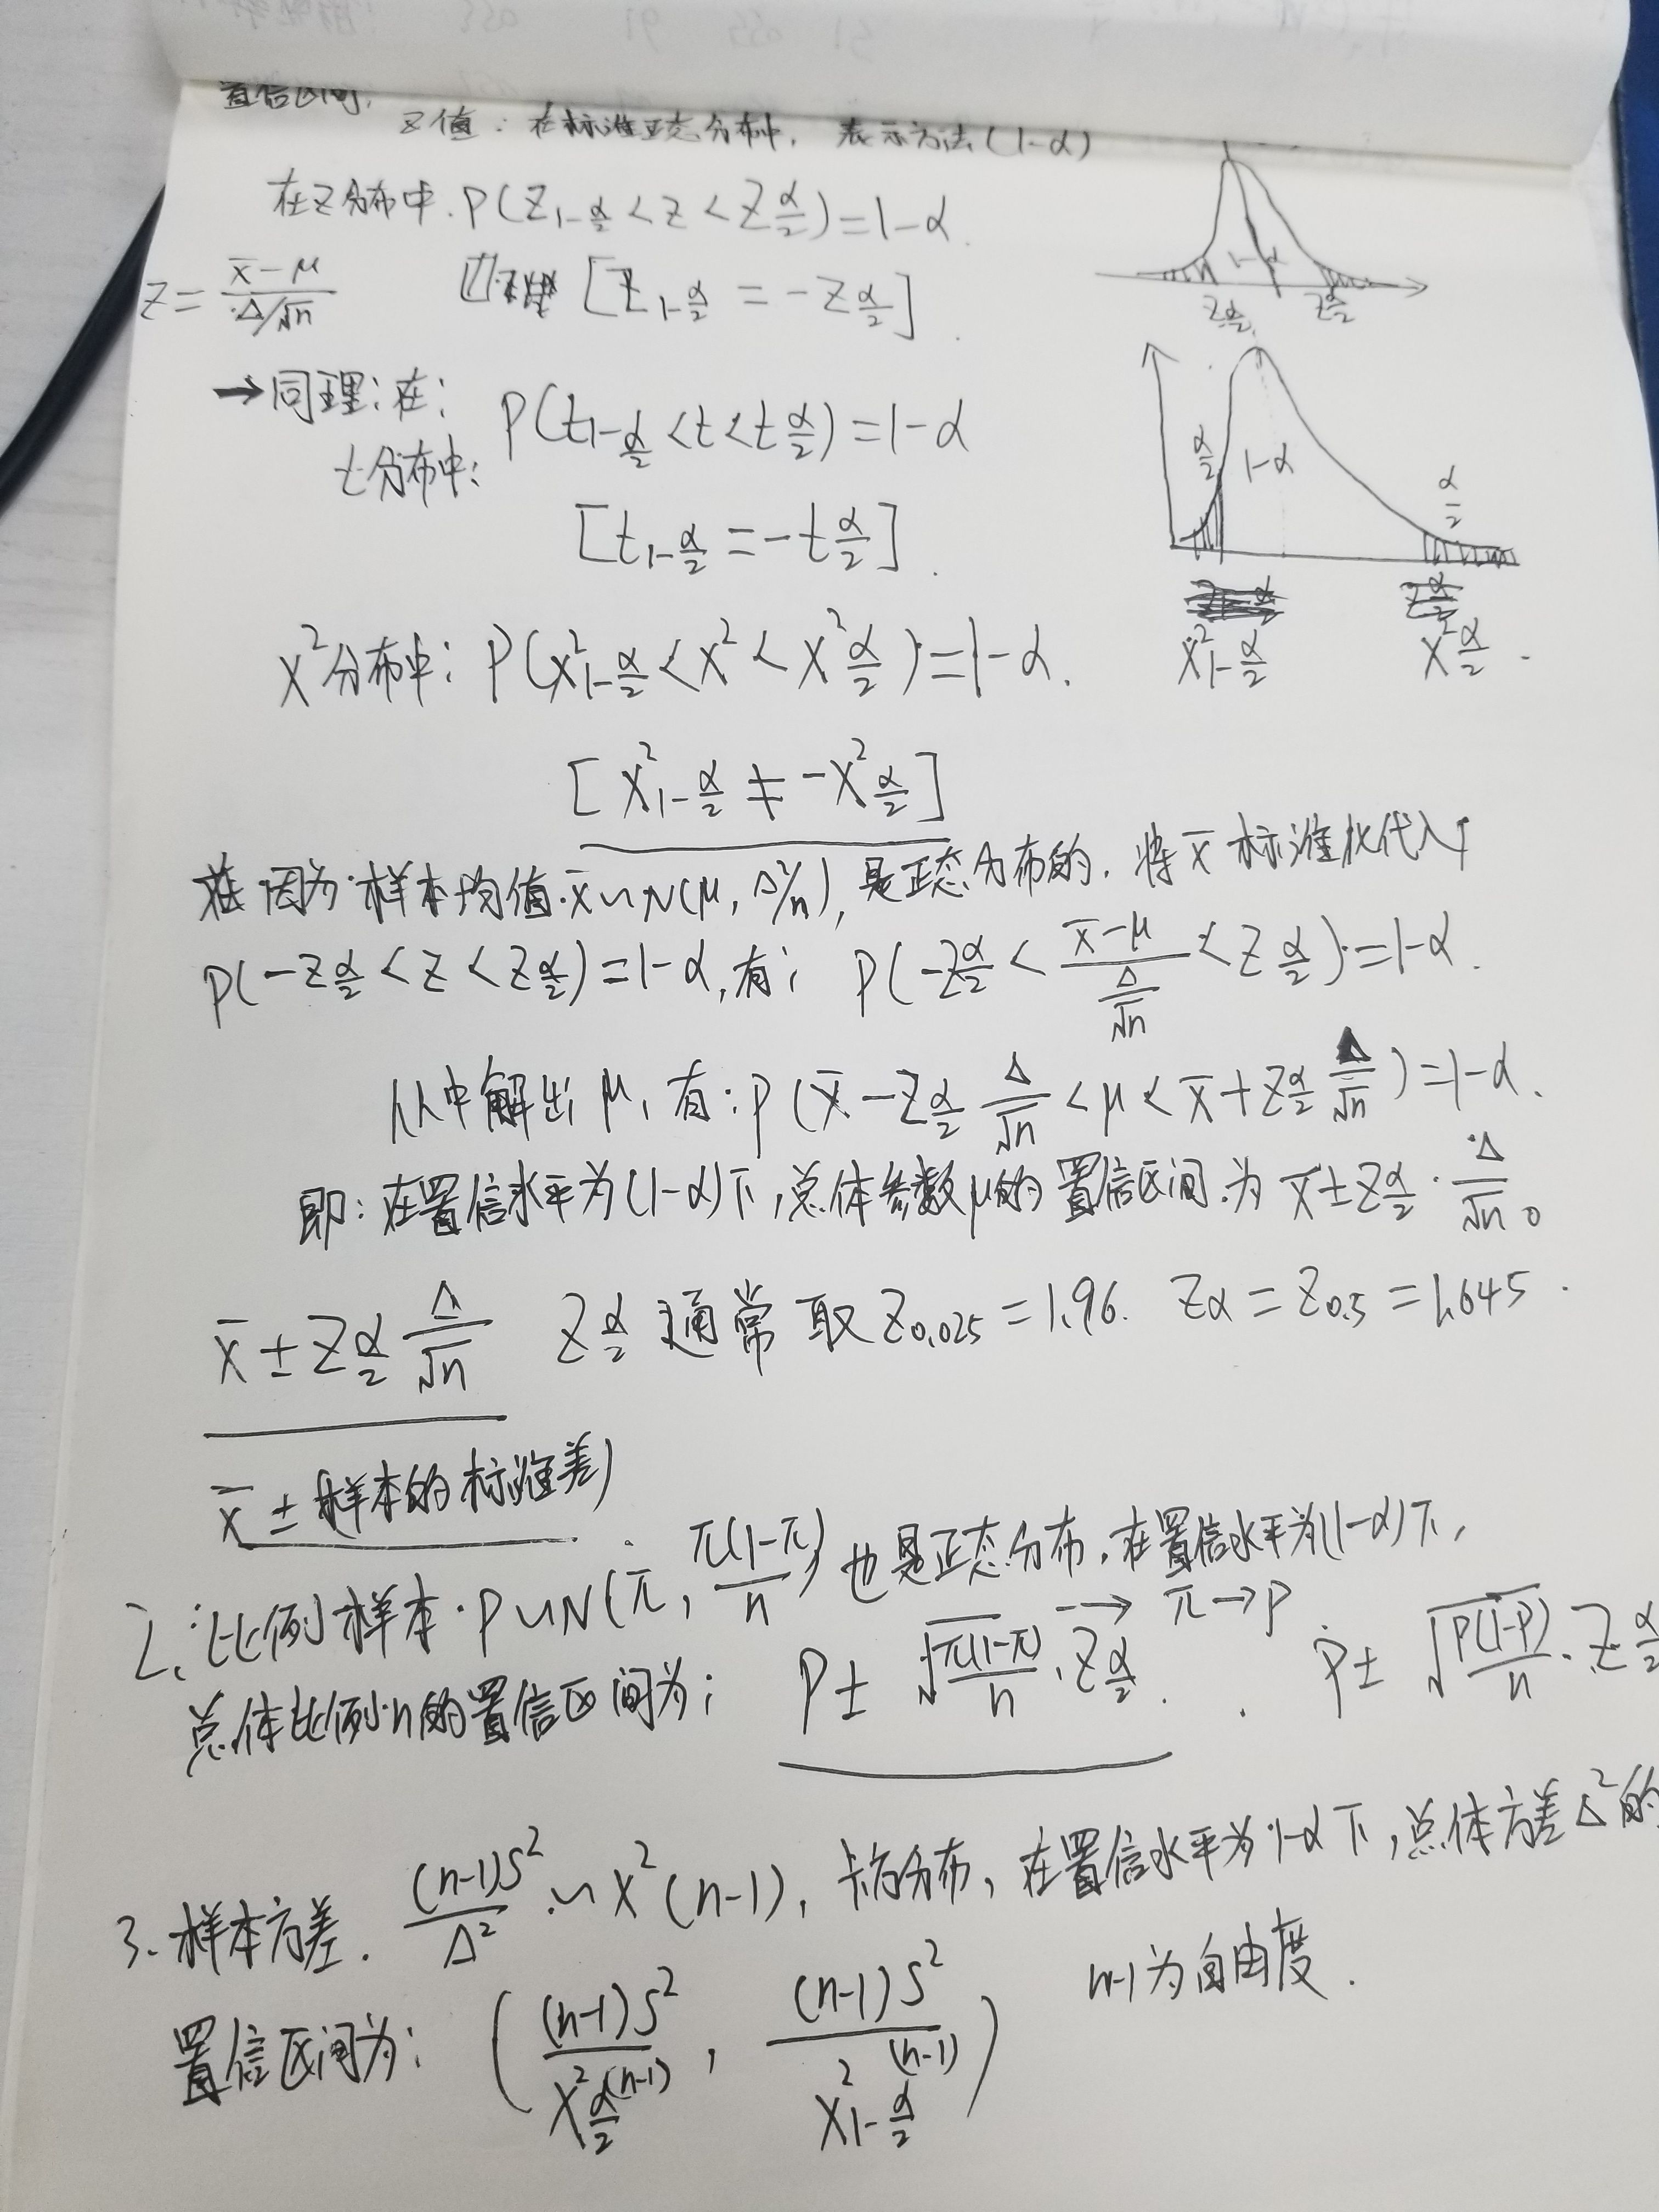 置信区间,
Z值：在标准正态分布中, 表示方法(1-α)
在Z分布中. P(Z₁₋α/₂ < Z < Zα/₂) = 1-α.
Z = (x̄-μ)/(Δ/√n) [Z₁₋α/₂ = -Zα/₂].
1-α
Zα/₂ Zα/₂
→同理; 在;
t分布中: P(t₁₋α/₂ < t < tα/₂) = 1-α
[t₁₋α/₂ = -tα/₂].
α/2 1-α α/2
X²₁₋α/₂ X²α/₂.
X²分布中: P(X²₁₋α/₂ < X² < X²α/₂) = 1-α.
[X²₁₋α/₂ ≠ -X²α/₂]
因为样本均值x̄∽N(μ, Δ²/n), 是正态分布的. 将x̄标准化代入
P(-Zα/₂ < Z < Zα/₂) = 1-α, 有; P(-Zα/₂ < (x̄-μ)/(Δ/√n) < Zα/₂) = 1-α.
从中解出μ, 有: P(x̄ - Zα/₂ Δ/√n < μ < x̄ + Zα/₂ Δ/√n) = 1-α.
即: 在置信水平为(1-α)下, 总体参数μ的置信区间为 x̄ ± Zα/₂·Δ/√n。
x̄ ± Zα/₂ Δ/√n Zα/₂ 通常取 Z₀.₀₂₅ = 1.96. Zα = Z₀.₅ = 1.645.
x̄ ± (样本的标准差)
2. 比例样本. P∽N(π, π(1-π)/n) 也是正态分布, 在置信水平为(1-α)下,
总体比例n的置信区间为; P ± √(π(1-π)/n)·Zα/₂. → π→P P ± √(P(1-P)/n)·Zα/₂
3. 样本方差. (n-1)S²/Δ² ∽ X²(n-1), 卡方分布, 在置信水平为1-α下, 总体方差Δ²的
置信区间为: ((n-1)S²/X²α/₂(n-1), (n-1)S²/X²₁₋α/₂(n-1)) n-1为自由度.